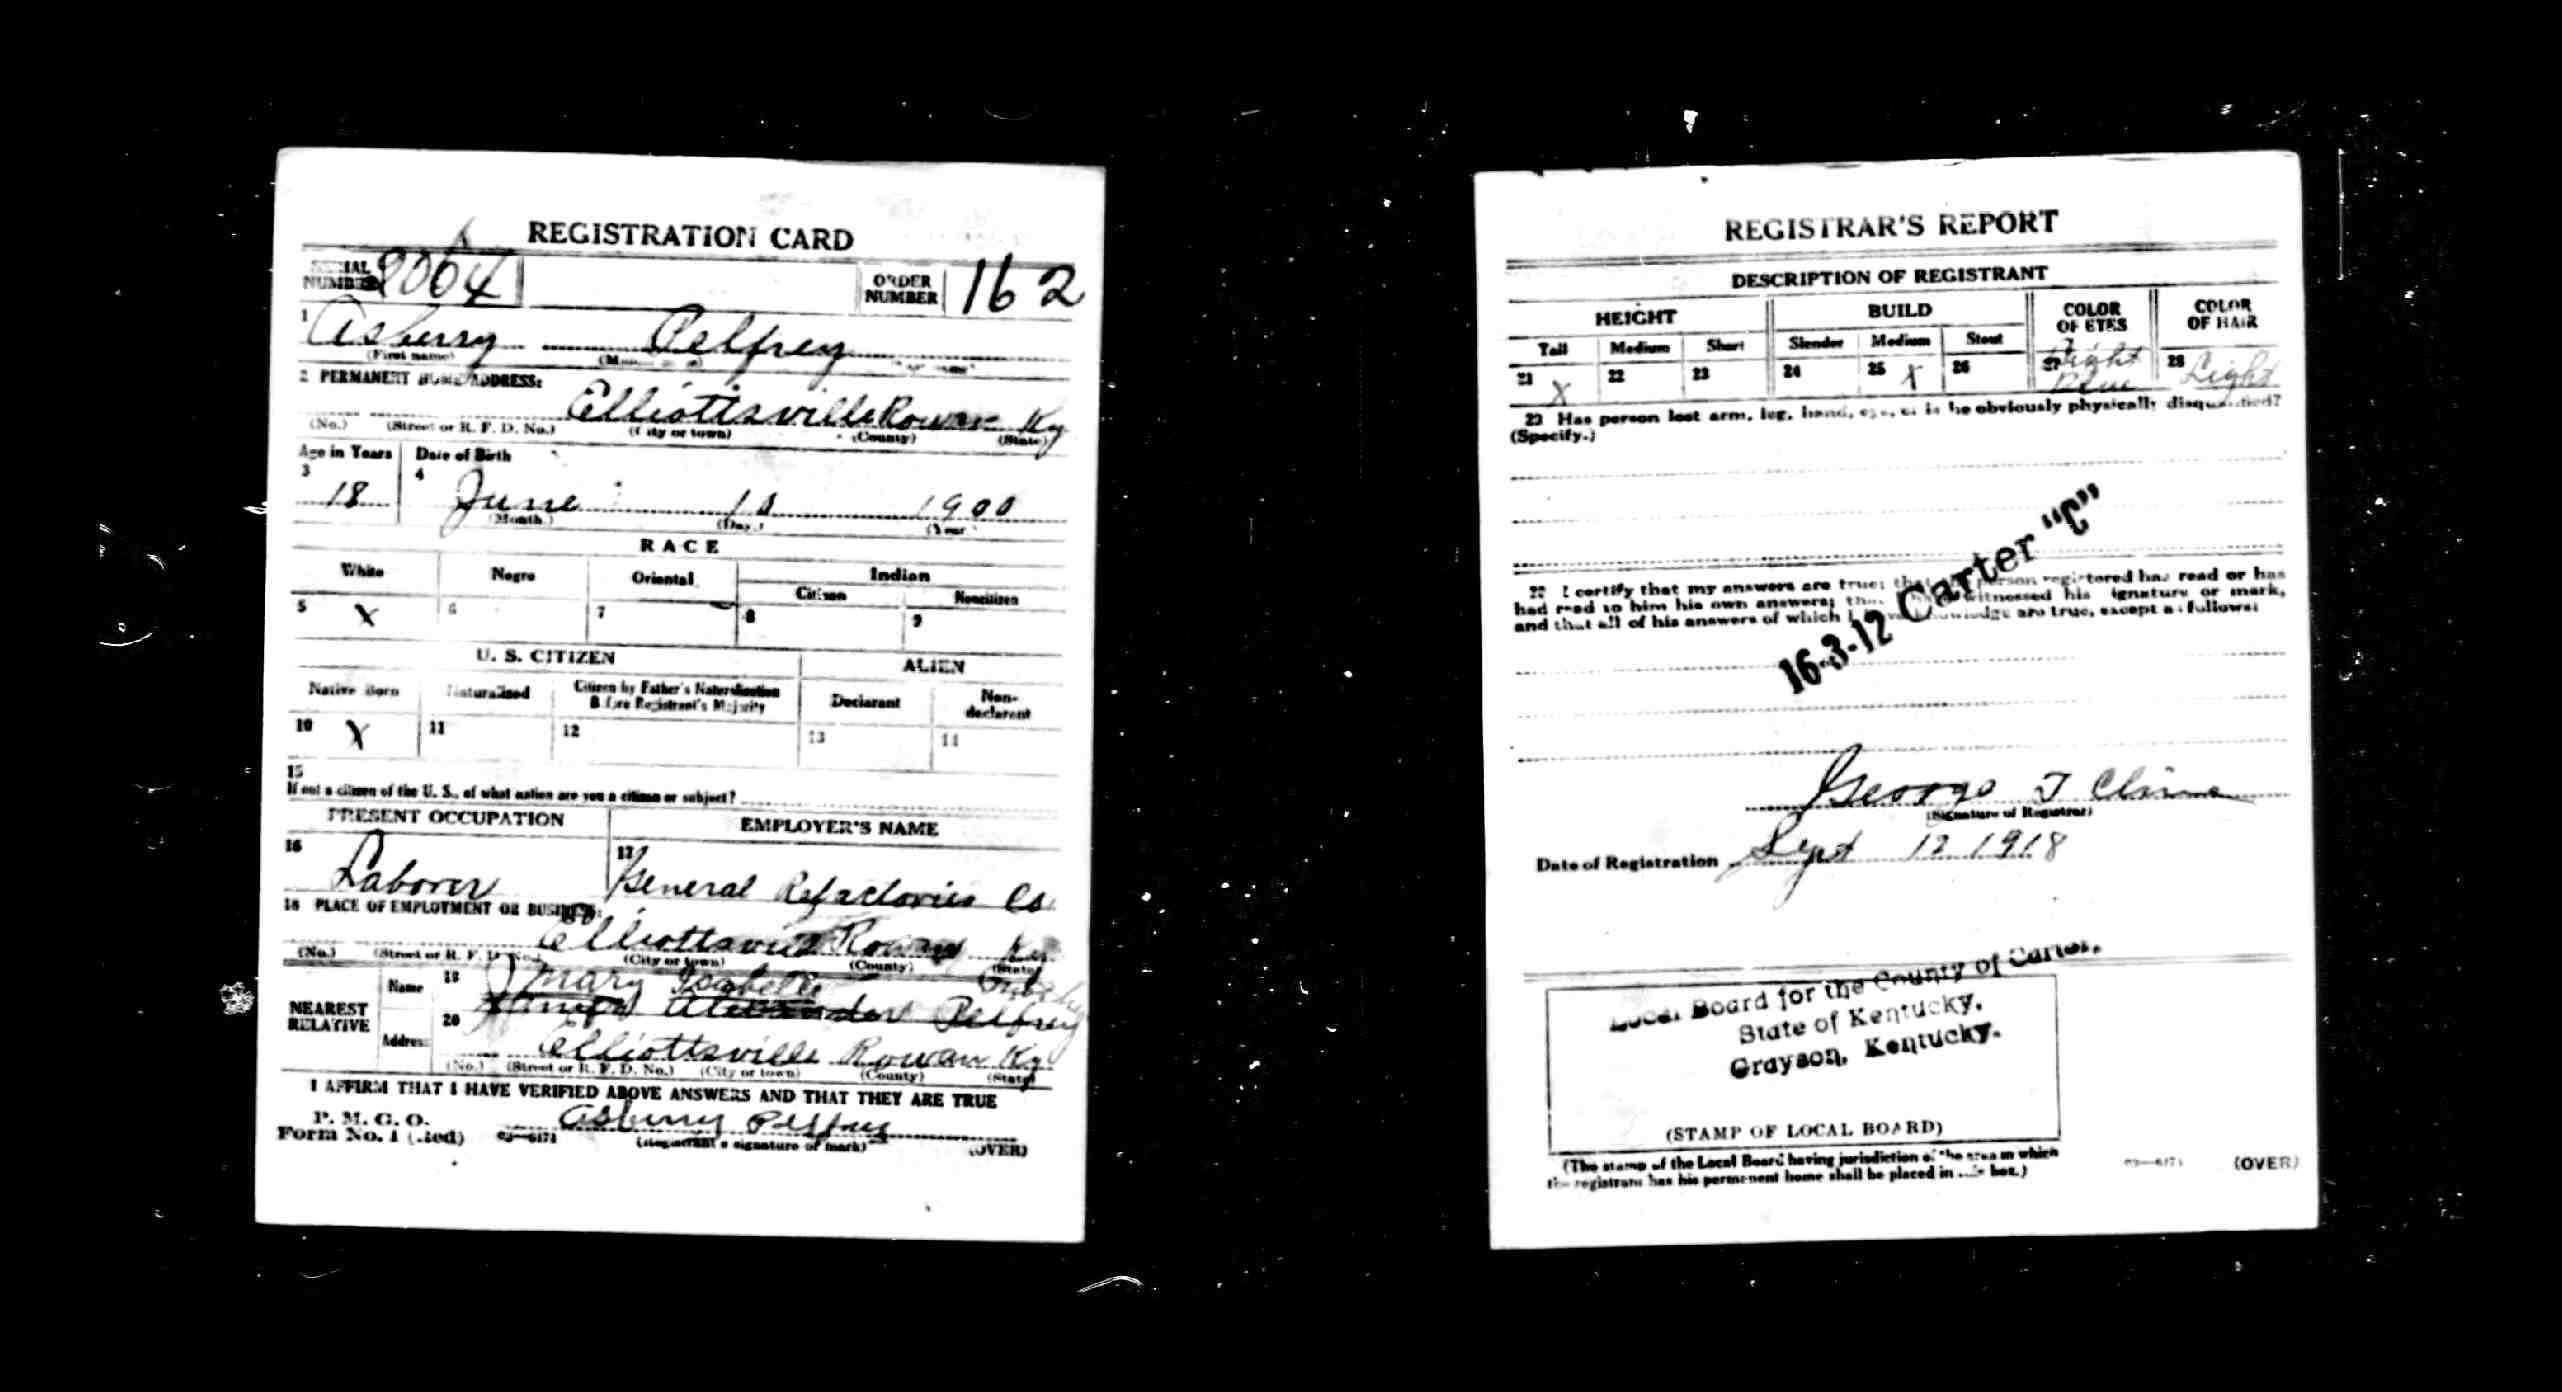 REGISTRATION CARD
SERIAL NUMBER 2064 ORDER NUMBER 162
1 Asberry Pelfrey
(First name)
2 PERMANENT HOME ADDRESS:
Elliottsville Rowan Ky
(No.) (Street or R. F. D. No.) (City or town) (County) (State)
Age in Years Date of Birth
3 18 4 June 10 1900
(Month.) (Day.) (Year.)
RACE
White Negro Oriental Indian
Citizen Noncitizen
5 X 6 7 8 9
U. S. CITIZEN ALIEN
Native Born Naturalized Citizen by Father's Naturalization Before Registrant's Majority Declarant Non-declarant
10 X 11 12 13 14
15
If not a citizen of the U. S., of what nation are you a citizen or subject?
PRESENT OCCUPATION EMPLOYER'S NAME
16 Laborer 17 General Refactories Co
18 PLACE OF EMPLOYMENT OR BUSINESS:
Elliottsville Rowan Ky
(No.) (Street or R. F. D. No.) (City or town) (County) (State)
NEAREST RELATIVE Name 19 Mary Isabelle
Alexander Pelfrey
Address 20 Elliottsville Rowan Ky
(No.) (Street or R. F. D. No.) (City or town) (County) (State)
I AFFIRM THAT I HAVE VERIFIED ABOVE ANSWERS AND THAT THEY ARE TRUE
P. M. G. O.
Form No. 1 (Red) 03—6171 Asberry Pelfrey
(Registrant's signature or mark) (OVER)
REGISTRAR'S REPORT
DESCRIPTION OF REGISTRANT
HEIGHT BUILD COLOR OF EYES COLOR OF HAIR
Tall Medium Short Slender Medium Stout
21 X 22 23 24 25 X 26 27 Light Blue 28 Light
29 Has person lost arm, leg, hand, eye, or is he obviously physically disqualified?
(Specify.)
30 I certify that my answers are true; that the person registered has read or has
had read to him his own answers; that I have witnessed his signature or mark,
and that all of his answers of which I have knowledge are true, except as follows:
16-3-12 Carter "C"
George T Cline
(Signature of Registrar)
Date of Registration Sept 12 1918
Local Board for the County of Carter,
State of Kentucky,
Grayson, Kentucky.
(STAMP OF LOCAL BOARD)
(The stamp of the Local Board having jurisdiction of the area in which
the registrant has his permanent home shall be placed in this box.)
03—6171 (OVER)